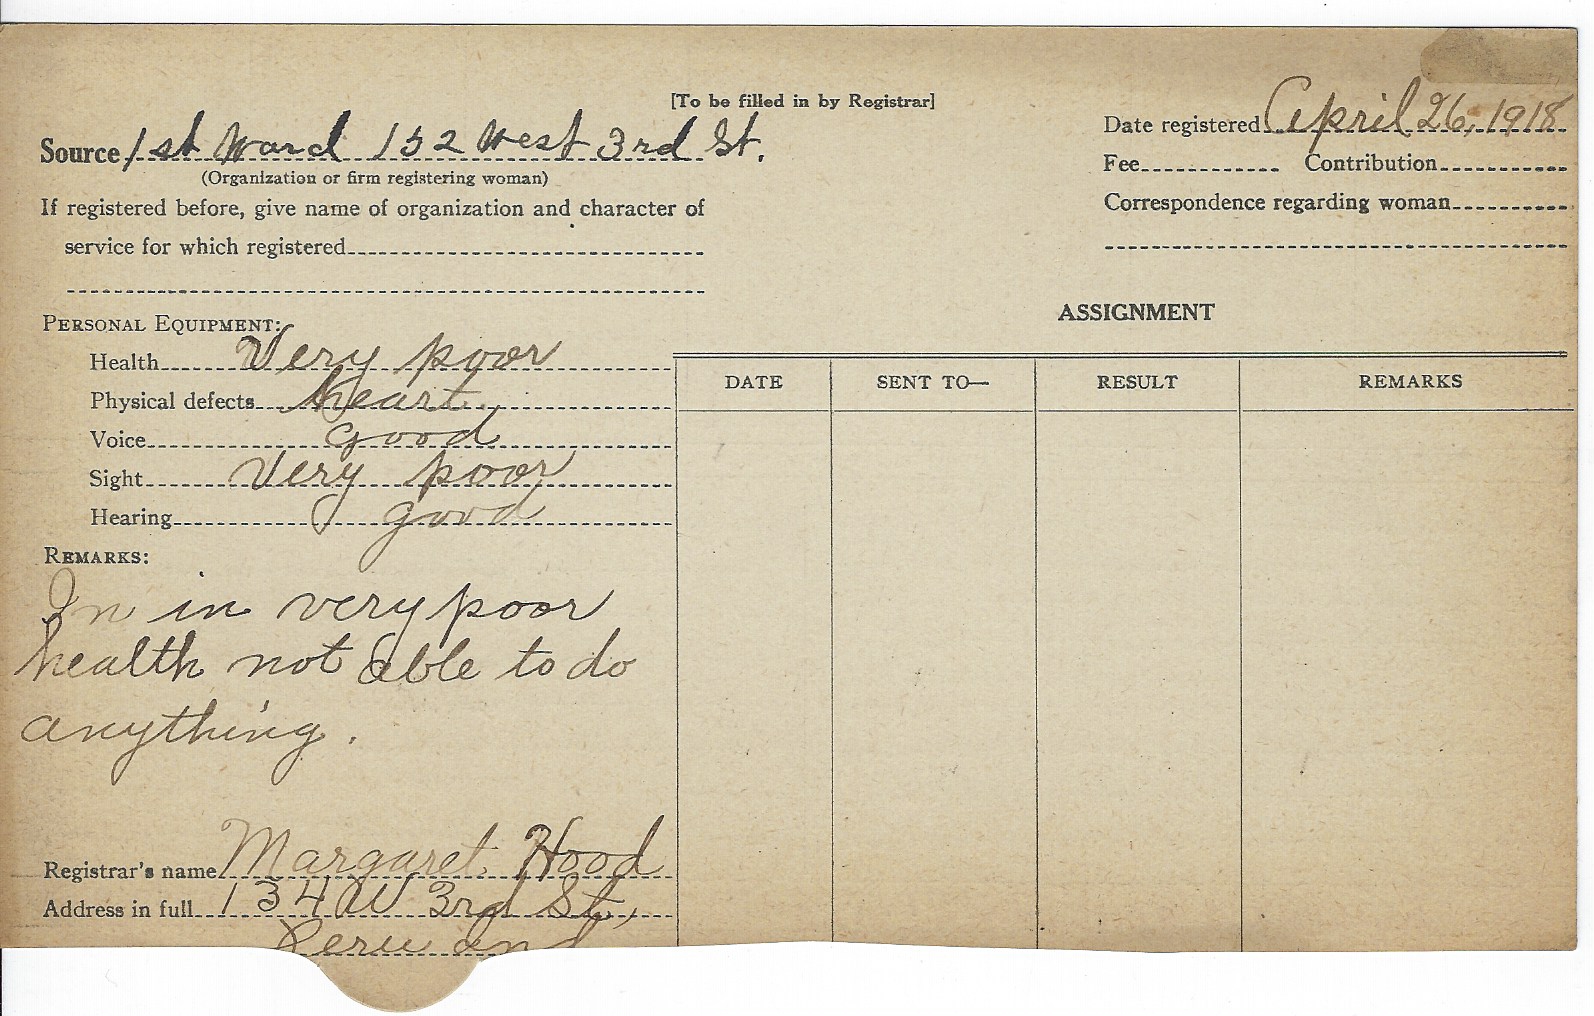 [To be filled in by Registrar]
Source 1st Ward 152 West 3rd St.
(Organization or firm registering woman)
If registered before, give name of organization and character of
service for which registered
Date registered April 26, 1918
Fee Contribution
Correspondence regarding woman
PERSONAL EQUIPMENT:
Health Very poor
Physical defects heart
Voice good
Sight Very poor
Hearing good
REMARKS:
In in very poor
health not able to do
anything.
Registrar's name Margaret Hood
Address in full 134 W 3rd St,
Peru Ind
ASSIGNMENT
DATE SENT TO— RESULT REMARKS